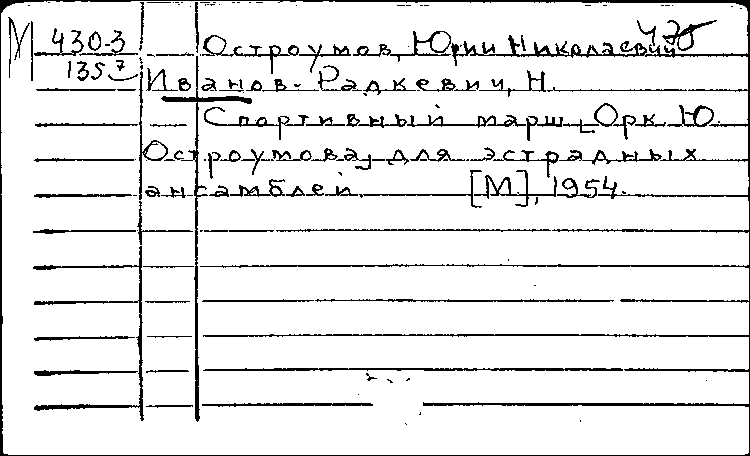 М 430-3 Остроумов, Юрий Николаевич
1357 Иванов-Радкевич, Н.
Спортивный марш [Орк. Ю.
Остроумова] для эстрадных
ансамблей. [М], 1954.